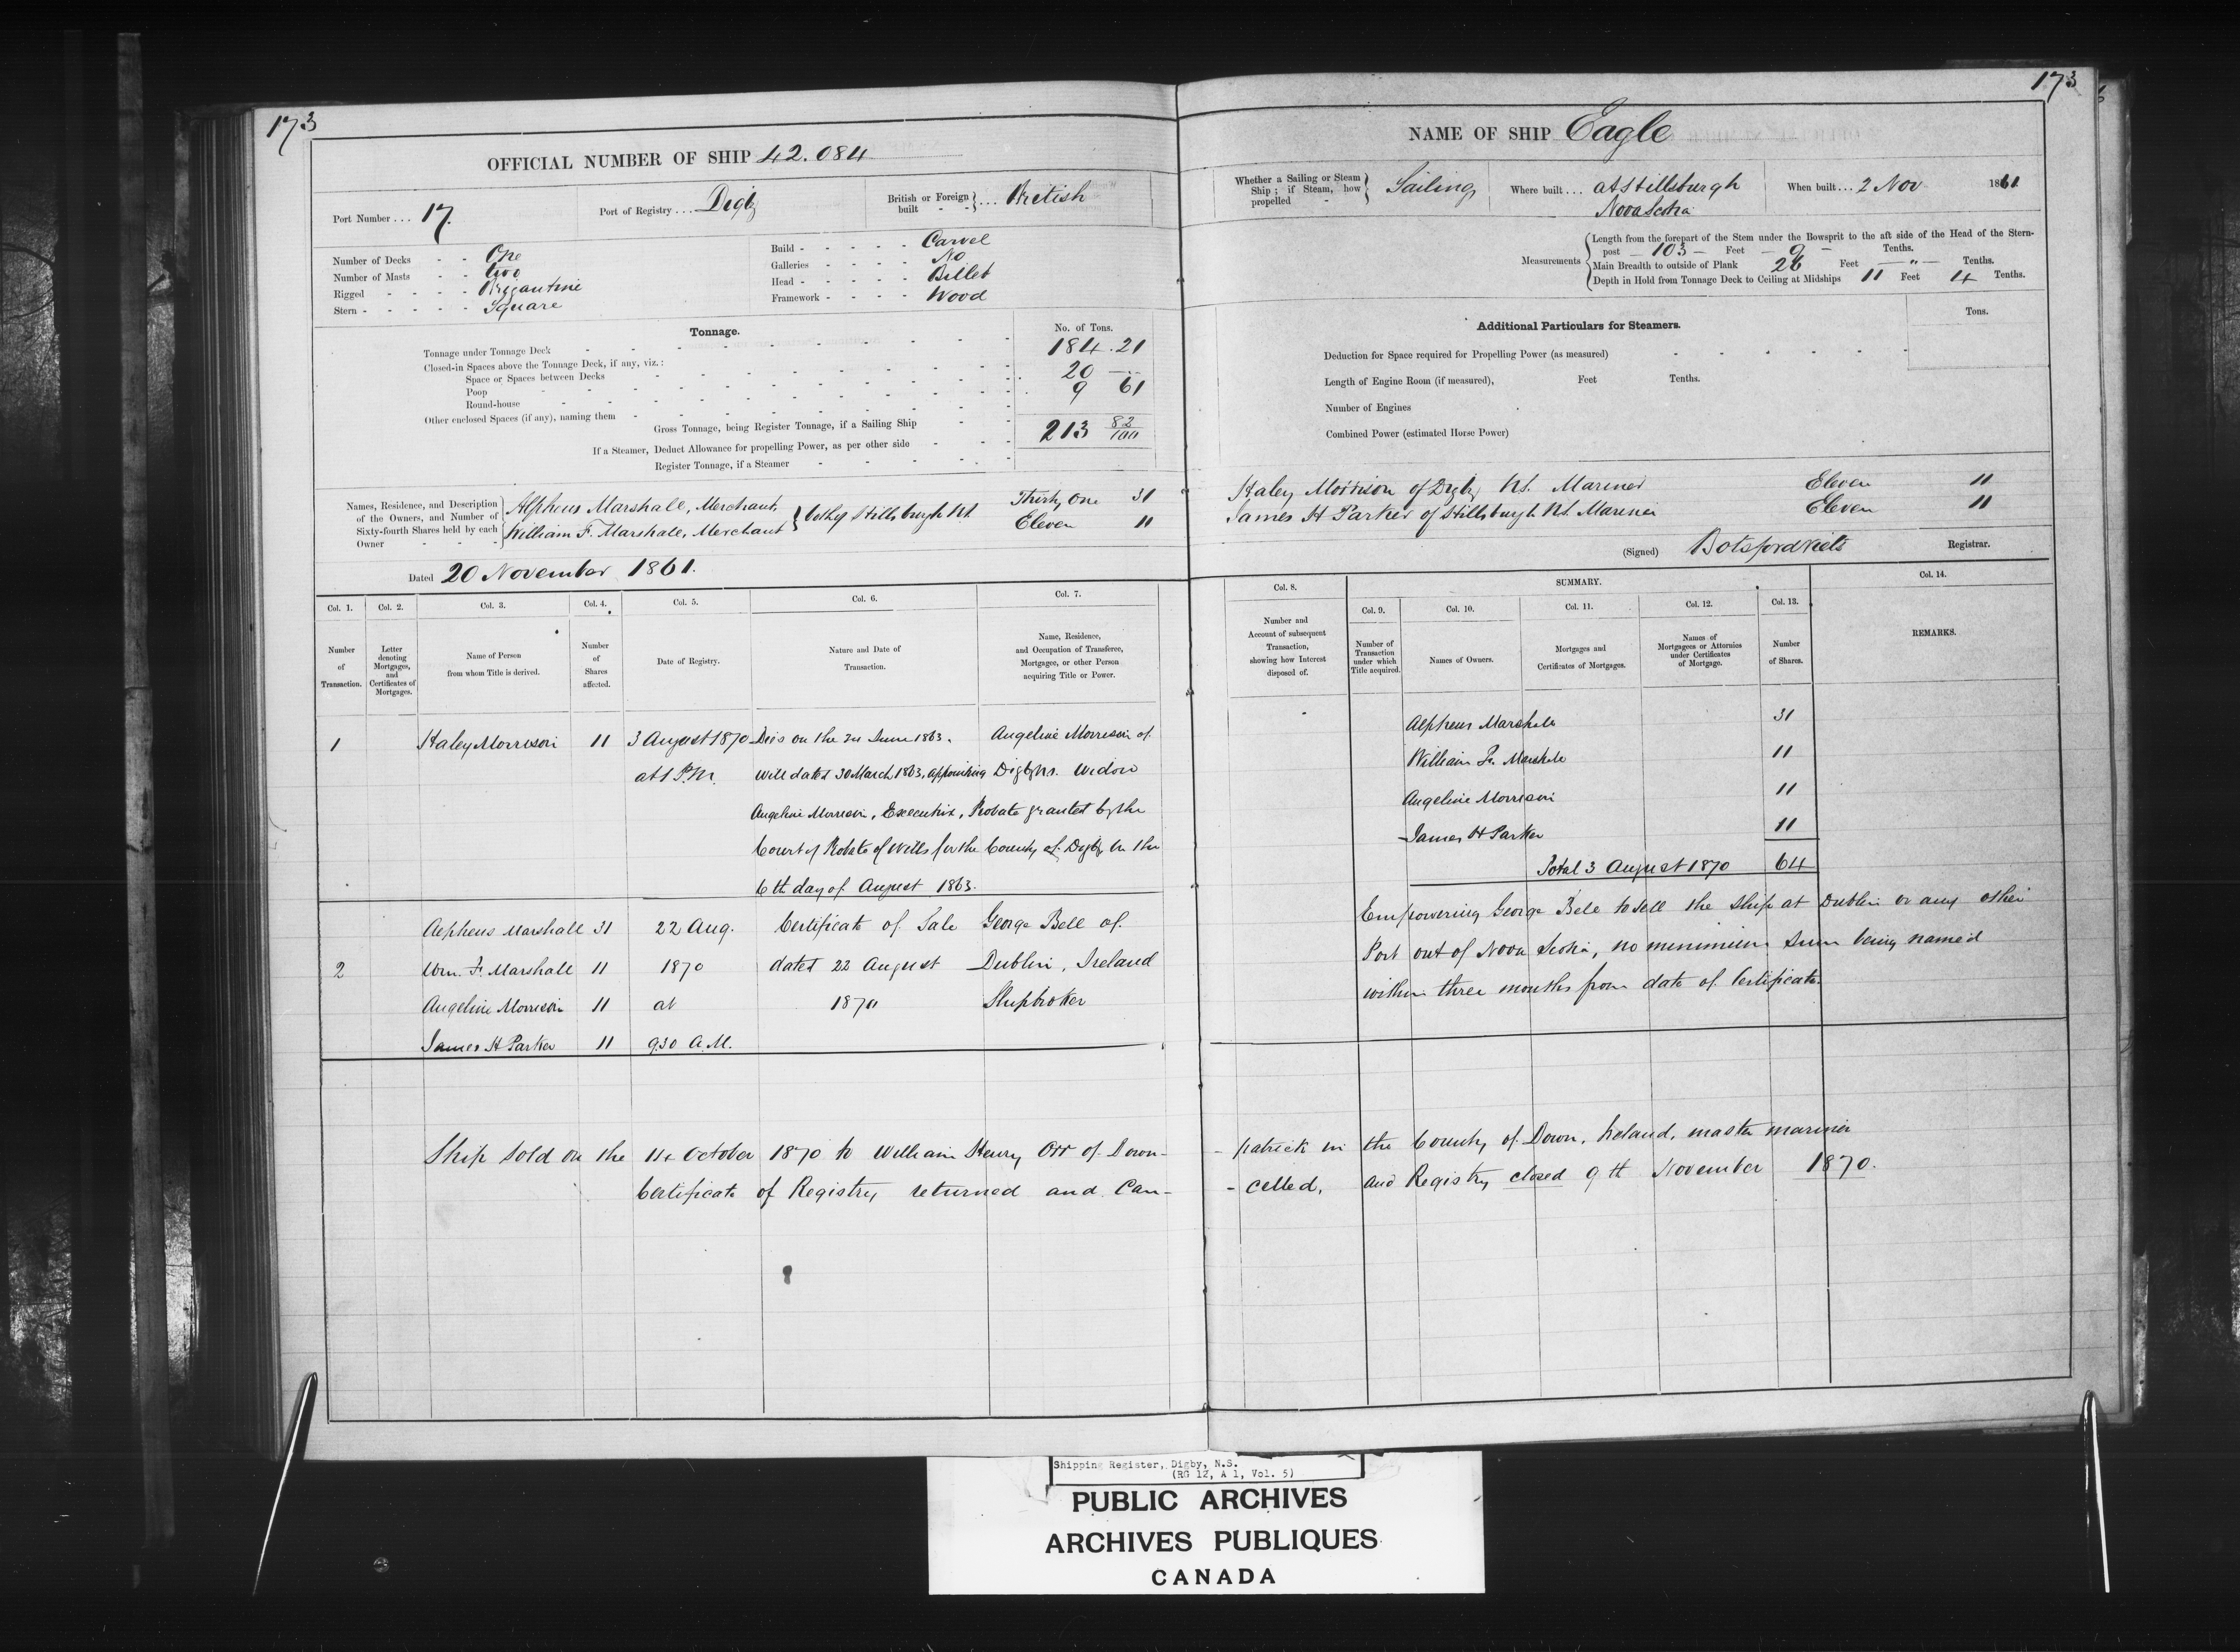 173
OFFICIAL NUMBER OF SHIP 42.084
Port Number . . . 17.
Port of Registry . . . Digby
British or Foreign built - - } . . . British
Number of Decks - - One
Number of Masts - - two
Rigged - - - - Brigantine
Stern - - - - - Square
Build - - - - - Carvel
Galleries - - - - No
Head - - - - - Billet
Framework - - - - Wood
Tonnage.
No. of Tons.
Tonnage under Tonnage Deck 184.21
Closed-in Spaces above the Tonnage Deck, if any, viz.:
Space or Spaces between Decks 20 —
Poop 9 61
Round-house
Other enclosed Spaces (if any), naming them
Gross Tonnage, being Register Tonnage, if a Sailing Ship 213 82/100
If a Steamer, Deduct Allowance for propelling Power, as per other side
Register Tonnage, if a Steamer
Names, Residence, and Description of the Owners, and Number of Sixty-fourth Shares held by each Owner
Alpheus Marshall, Merchant,
William F. Marshall, Merchant } both of Hillsburgh N.S.
Thirty One 31
Eleven 11
Dated 20 November 1861.
Col. 1. Col. 2. Col. 3. Col. 4. Col. 5. Col. 6. Col. 7.
Number of Transaction.
Letter denoting Mortgages, and Certificates of Mortgages.
Name of Person from whom Title is derived.
Number of Shares affected.
Date of Registry.
Nature and Date of Transaction.
Name, Residence, and Occupation of Transferee, Mortgagee, or other Person acquiring Title or Power.
1 Haley Morrison 11 3 August 1870 Died on the June 1863. Angeline Morrison of
at 1 P.M. Will dated 30 March 1863, appointing Digby N.S. Widow
Angeline Morrison, Executrix, Probate granted by the
Court of Probate of Wills for the County of Digby on the
6th day of August 1863.
Alpheus Marshall 31 22 Aug. Certificate of Sale George Bell of
2 Wm. F. Marshall 11 1870 dated 22 August Dublin, Ireland
Angeline Morrison 11 at 1870 Shipbroker
James H Parker 11 9.30 A.M.
Ship sold on the 11th October 1870 to William Henry Orr of Down-
Certificate of Registry returned and Can-
173
NAME OF SHIP Eagle
Whether a Sailing or Steam Ship; if Steam, how propelled - } Sailing
Where built . . . at Hillsburgh
Nova Scotia
When built . . . 2 Nov 1861
Measurements
Length from the forepart of the Stem under the Bowsprit to the aft side of the Head of the Stern-
post — 103 — Feet — 9 — Tenths.
Main Breadth to outside of Plank 26 Feet — " — Tenths.
Depth in Hold from Tonnage Deck to Ceiling at Midships 11 Feet 4 Tenths.
Additional Particulars for Steamers.
Tons.
Deduction for Space required for Propelling Power (as measured)
Length of Engine Room (if measured), Feet Tenths.
Number of Engines
Combined Power (estimated Horse Power)
Haley Morrison of Digby N.S. Mariner Eleven 11
James H Parker of Hillsburgh N.S. Mariner Eleven 11
(Signed) Botsford Viets Registrar.
Col. 8. SUMMARY. Col. 14.
Col. 9. Col. 10. Col. 11. Col. 12. Col. 13.
Number and Account of subsequent Transaction, showing how Interest disposed of.
Number of Transaction under which Title acquired.
Names of Owners.
Mortgages and Certificates of Mortgages.
Names of Mortgagees or Attornies under Certificates of Mortgage.
Number of Shares.
REMARKS.
Alpheus Marshall 31
William F. Marshall 11
Angeline Morrison 11
James H Parker 11
Total 3 August 1870 64
Empowering George Bell to sell the Ship at Dublin or any other
Port out of Nova Scotia, no minimum sum being named
within three months from date of Certificate.
-patrick in the County of Down, Ireland, master mariner
-celled, and Registry closed 9th November 1870.
Shipping Register, Digby, N.S.
(RG 12, A 1, Vol. 5)
PUBLIC ARCHIVES
ARCHIVES PUBLIQUES
CANADA